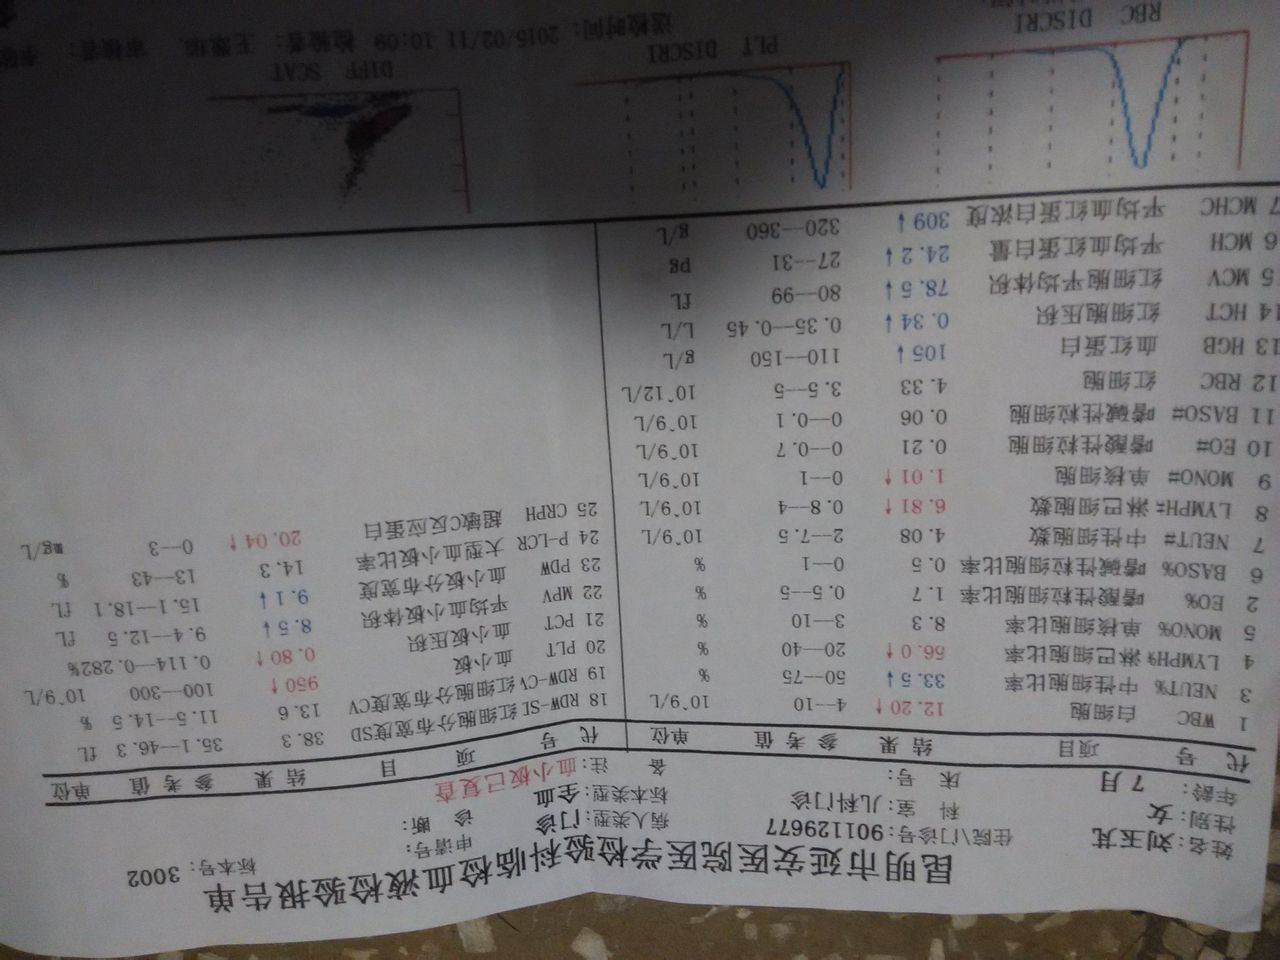 昆明市延安医院医学检验科临检血液检验报告单
标本号：3002
姓名：刘玉芃 住院/门诊号：901129677 病人类型：门诊 申请号：
性别：女 科 室：儿科门诊 标本类型：全血 诊 断：
年龄： 7 月 床 号： 备 注：血小板已复查
代 号 项目 结 果 参 考 值 单位 代 号 项 目 结 果 参 考 值 单位
1 WBC 白细胞 12.20↑ 4--10 10^9/L
3 NEUT% 中性细胞比率 33.5↓ 50--75 %
4 LYMPH% 淋巴细胞比率 56.0↑ 20--40 %
5 MONO% 单核细胞比率 8.3 3--10 %
2 EO% 嗜酸性粒细胞比率 1.7 0.5--5 %
6 BASO% 嗜碱性粒细胞比率 0.5 0--1 %
7 NEUT# 中性细胞数 4.08 2--7.5 10^9/L
8 LYMPH# 淋巴细胞数 6.81↑ 0.8--4 10^9/L
9 MONO# 单核细胞 1.01↑ 0--1 10^9/L
10 EO# 嗜酸性粒细胞 0.21 0--0.7 10^9/L
11 BASO# 嗜碱性粒细胞 0.06 0--0.1 10^9/L
12 RBC 红细胞 4.33 3.5--5 10^12/L
13 HGB 血红蛋白 105↓ 110--150 g/L
14 HCT 红细胞压积 0.34↓ 0.35--0.45 L/L
5 MCV 红细胞平均体积 78.5↓ 80--99 fL
6 MCH 平均血红蛋白量 24.2↓ 27--31 pg
7 MCHC 平均血红蛋白浓度 309↓ 320--360 g/L
18 RDW-SD 红细胞分布宽度SD 38.3 35.1--46.3 fL
19 RDW-CV 红细胞分布宽度CV 13.6 11.5--14.5 %
20 PLT 血小板 950↑ 100--300 10^9/L
21 PCT 血小板压积 0.80↑ 0.114--0.282%
22 MPV 平均血小板体积 8.5↓ 9.4--12.5 fL
23 PDW 血小板分布宽度 9.1↓ 15.1--18.1 fL
24 P-LCR 大型血小板比率 14.3 13--43 %
25 CRPH 超敏C反应蛋白 20.04↑ 0--3 mg/L
RBC DISCRI
PLT DISCRI
DIFF SCAT
送检时间：2015/02/11 10:09 检验者：王 审核者：